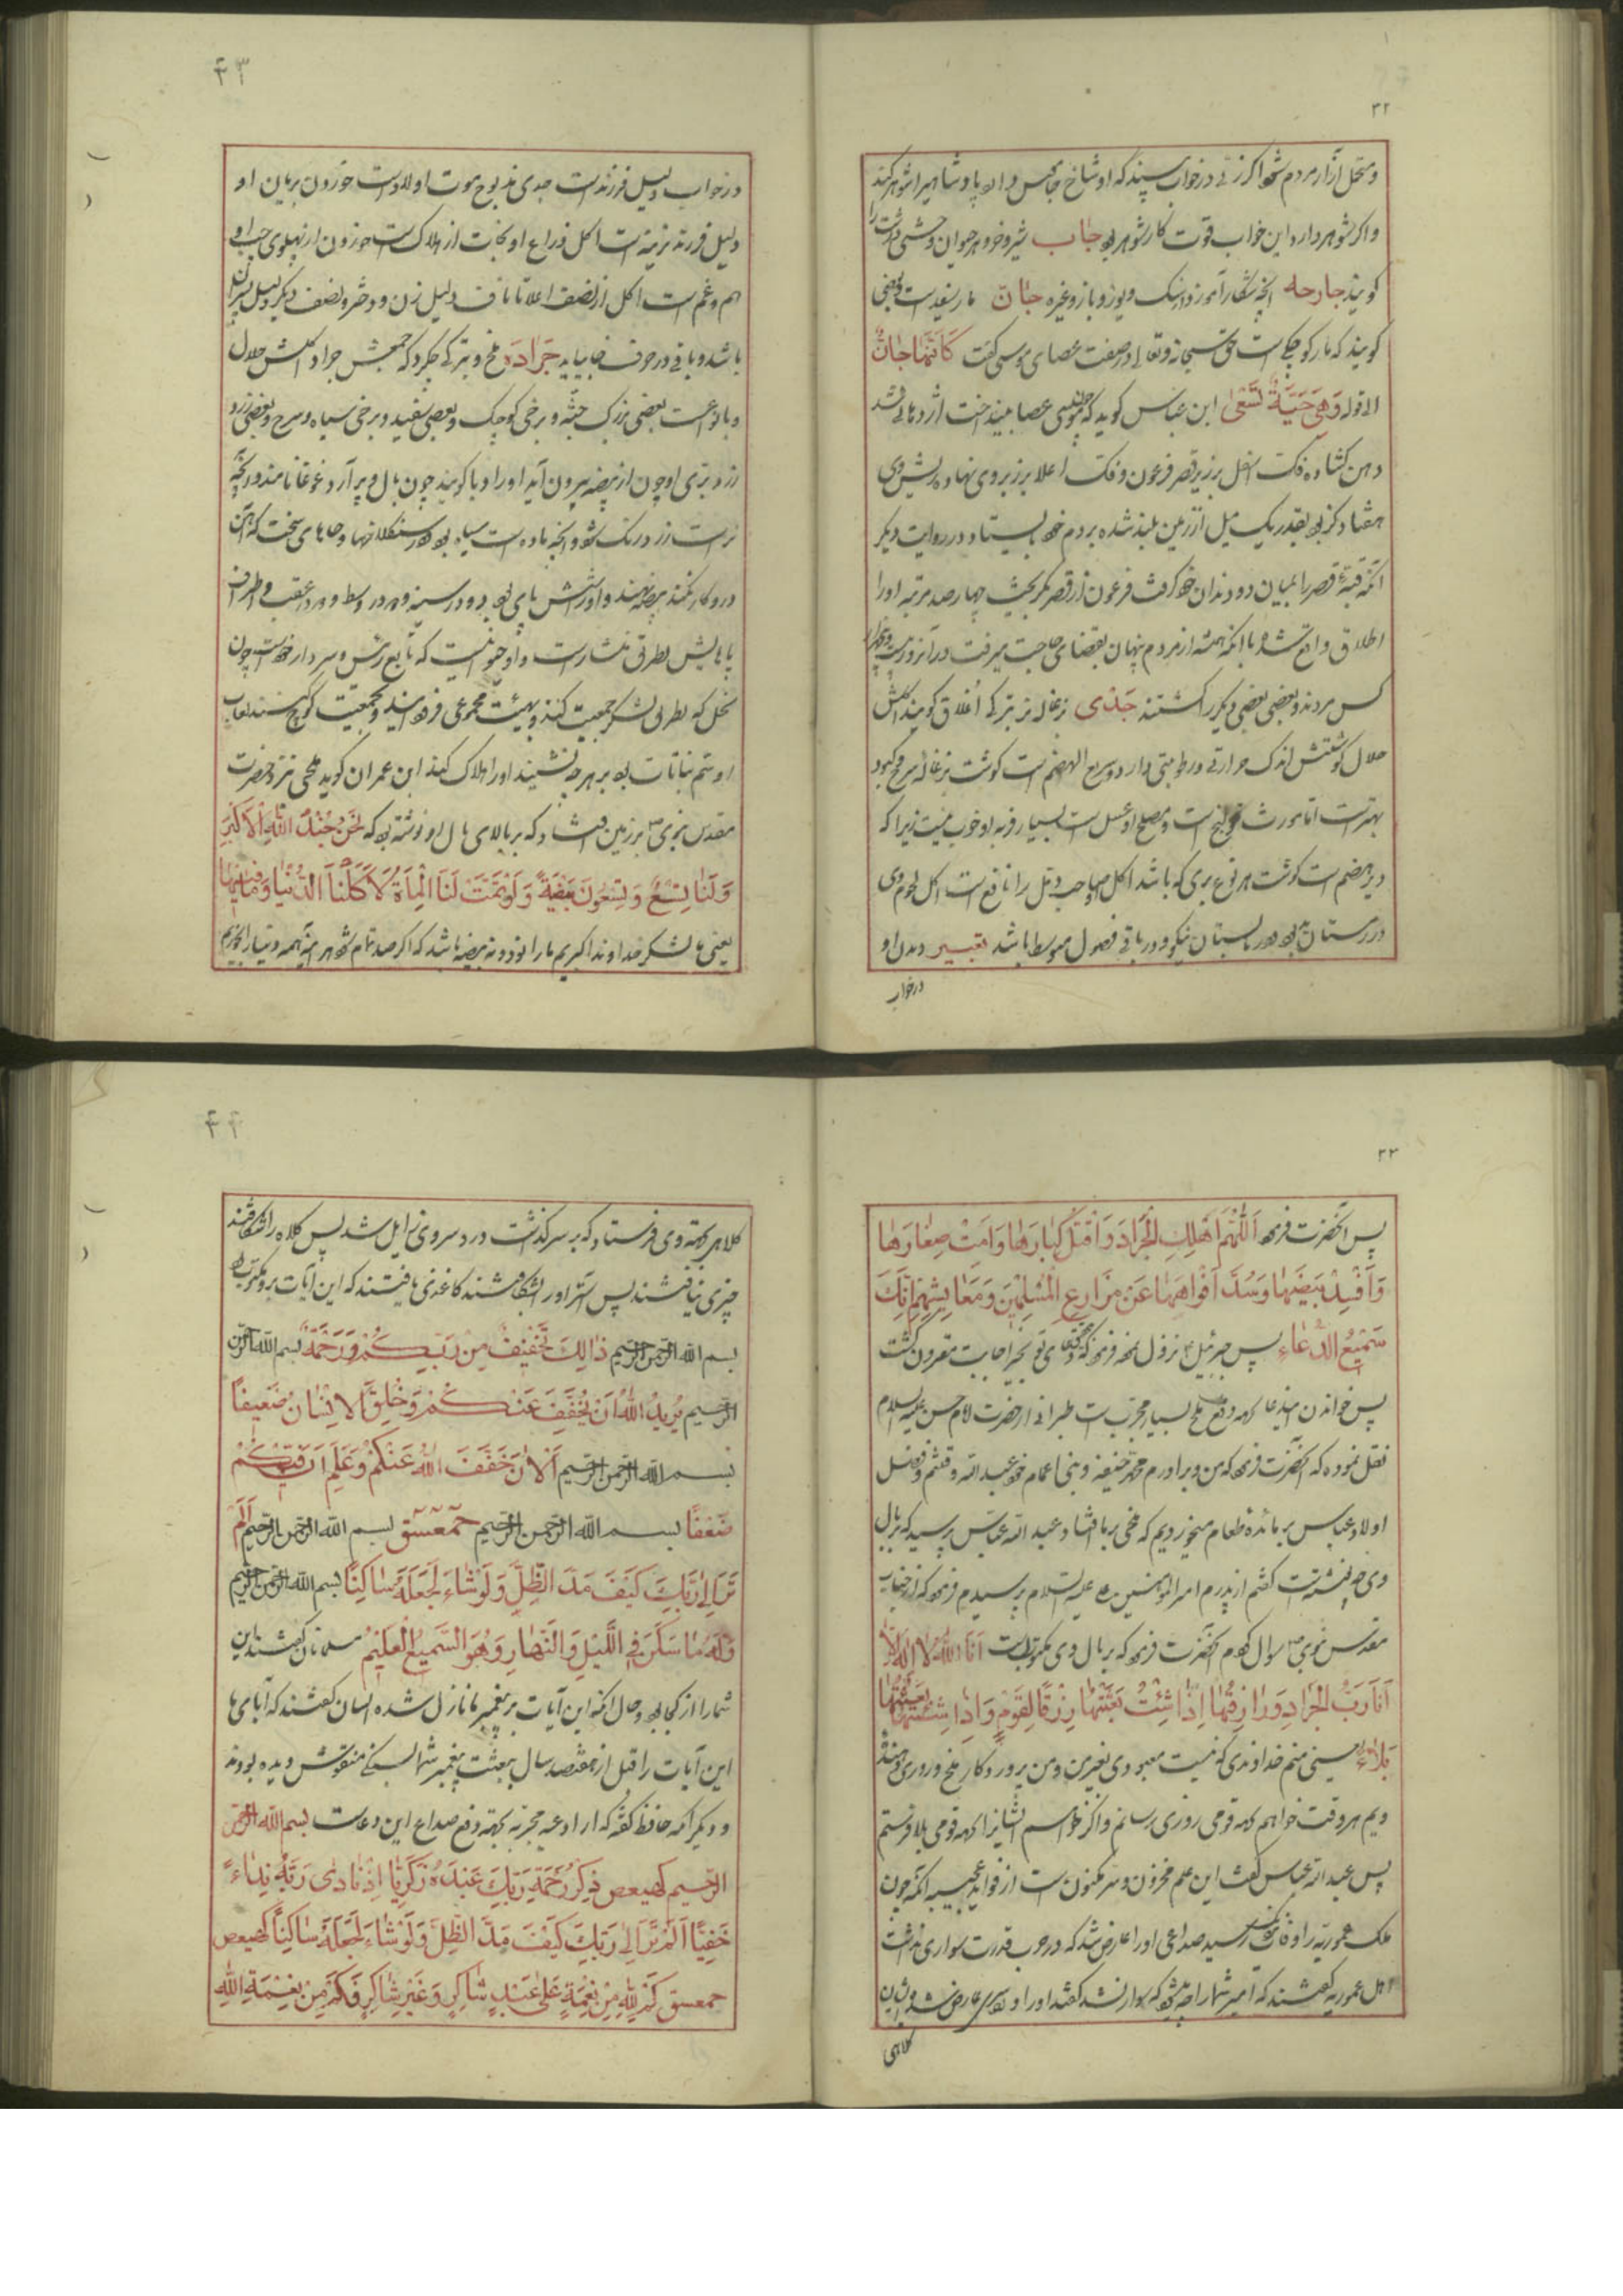 ۳۲
و متحمل آزار مردم شود اگر زنی در خواب بیند که او شاخ جاموس دارد پادشاهی را شوهر کند
و اگر شوهر دارد این خواب قوت کار شوهر بود جاب شیر و خر و هر حیوان وحشی درشت را
گویند جارحه آنچه شکار آموزد از سگ و یوز و باز و غیره جان مار سفید است بعضی
گویند که مار کوچک است حق سبحانه و تعالی در صفت عصای موسی گفت كَأَنَّهَا جَانٌّ
الا قوله وَهِيَ حَيَّةٌ تَسْعَىٰ ابن عباس گوید که چون موسی عصا بینداخت اژدهائی شد
دهن گشاده فک اسفل بر زیر قصر فرعون و فک اعلا بر زبر وی نهاده پیش وی
هشتاد گز بود بقدر یک میل از زمین بلند شده بر دم خود بایستاد و در روایت دیگر
آنکه قبهٔ قصر را بمیان دو دندان خود گرفت فرعون از قصر بگریخت چهار صد مرتبه او را
اطلاق واقع شد با آنکه همیشه از مردم پنهان بقضای حاجت میرفت در آنروز بیست و پنج هزار
کس مردند و بعضی بعضی دیگر را کشتند جَدْی بزغاله نر بترکی اغلاق گویند اکلش
حلال گوشتش اندک حرارتی و رطوبتی دارد و سریع الهضم است گوشت بزغاله سرخ کبود
بهتر است اما مورث قولنج است و مصلح او عسل است بسیار فربه او خوب نیست زیرا که
دیر هضم است گوشت هر نوع بری که باشد اکل صاحب دمل را نافع است اکل لحوم وی
در زمستان بد بود و در تابستان نیکو و در باقی فصول متوسط باشد تعبیر دیدن او
در خواب
۴۳
در خواب دلیل فرزند است جدی مذبوح موت اولاد است خوردن بریان او
دلیل فرزند نرینه است اکل ذراع او نجات از هلاک است خوردن از پهلوی چپ او
هم و غم است اکل از نصف اعلا تا ناف دلیل زن و دختر و نصف دیگر دلیل پسران
باشد و باقی در حرف خا بیاید جَرَادَه ملخ و بترکی چکرکه جمعش جراد اکلش حلال
و بانواعست بعضی بزرگ جثه و برخی کوچک و بعضی سفید و برخی سیاه و سرخ و بعضی زرد
زرد بری او چون از بیضه بیرون آید او را دبا گویند چون بال و پر آرد غوغا نامند و آنچه
نر است زرد رنگ شود و آنچه ماده است سیاه بود در سنگلاخها و جاهای سخت که آهن
درو کار نکند بیضه نهند و او را شش پای بود دو در سینه و دو در وسط و دو در عقب و اطراف
پاهایش بطریق منشار است و او حیوانیست که تابع رئیس و سردار خود است چون
نحل که بطریق لشکر جمعیت کنند و بهیئت مجموعی فرود آیند و بجمعیت کوچ کنند لعاب
او سم نباتات بود بر هر چه نشیند او را هلاک کند ابن عمران گوید ملخی نزد حضرت
مقدس نبوی ص بر زمین افتاد که بر بالای بال او نوشته بود که نَحْنُ جُنْدُ اللّٰهِ الْأَكْبَرِ
وَلَنَا تِسْعٌ وَتِسْعُونَ بَيْضَةً وَلَوْ تَمَّتْ لَنَا الْمِأَةُ لَأَكَلْنَا الدُّنْيَا وَمَا فِيهَا
یعنی ما لشکر خداوند اکبریم ما را نود و نه بیضه باشد که اگر صد تمام شود هر آینه همه دنیا را بخوریم
۳۳
پس آنحضرت فرمود اَللّٰهُمَّ أَهْلِكِ الْجَرَادَ وَاقْتُلْ كِبَارَهَا وَأَمِتْ صِغَارَهَا
وَأَفْسِدْ بَيْضَهَا وَسُدَّ أَفْوَاهَهَا عَنْ مَزَارِعِ الْمُسْلِمِينَ وَمَعَايِشِهِمْ إِنَّكَ
سَمِيعُ الدُّعَاءِ پس جبرئیل ع نزول نمود فرمود که دعای تو بخیر اجابت مقرون گشت
پس خواندن این دعا بجهة دفع ملخ بسیار مجربست طبرانی از حضرت امام حسن علیه السلام
نقل نموده که آنحضرت فرمود که من و برادرم محمد حنیفه و بنی اعمام خود عبد الله و قثم و فضل
اولاد عباس بر مائدهٔ طعام میخوردیم که ملخی بر ما افتاد عبد الله عباس پرسید که بر بال
وی چه نوشته است گفتم از پدرم امیر المؤمنین علیه السلام پرسیدم فرمود که از جناب
مقدس نبوی ص سوال کردم آنحضرت فرمود که بر بال وی مکتوبست أَنَا اللّٰهُ لَا إِلٰهَ إِلَّا
أَنَا رَبُّ الْجَرَادِ وَرَازِقُهَا إِذَا شِئْتُ بَعَثْتُهَا رِزْقًا لِقَوْمٍ وَإِذَا شِئْتُ بَعَثْتُهَا
بَلَاءً یعنی منم خداوندی که نیست معبودی بغیر من و من پروردگار ملخ و روزی دهنده
ویم هر وقت خواهم بجهة قومی روزی رسانم و اگر خواهم ایشانرا بجهة قومی بلا فرستم
پس عبد الله عباس گفت این علم مخزون و سر مکنون است از فواید عجیبه آنکه چون
ملک عموریه را وفات رسید صداعی او را عارض شد که در حرب قدرت سواری نداشت
اهل عموریه گفتند که امیر شما را چه شد که سوار نشد گفتند او را درد سری عارض شد ایشان
کلاهی
۴۴
کلاهی بجهة وی فرستاد که بر سر گذاشت درد سر وی زایل شد پس کلاه را شکافتند
چیزی نیافتند پس آستر او را شکافتند کاغذی یافتند که این آیات برو مکتوب بود
بسم الله الرحمن الرحیم ذٰلِكَ تَخْفِيفٌ مِنْ رَبِّكُمْ وَرَحْمَةٌ بسم الله الرحمن
الرحیم يُرِيدُ اللّٰهُ أَنْ يُخَفِّفَ عَنْكُمْ وَخُلِقَ الْإِنْسَانُ ضَعِيفًا
بسم الله الرحمن الرحیم اَلْآنَ خَفَّفَ اللّٰهُ عَنْكُمْ وَعَلِمَ أَنَّ فِيكُمْ
ضَعْفًا بسم الله الرحمن الرحیم حمعسق بسم الله الرحمن الرحیم أَلَمْ
تَرَ إِلَىٰ رَبِّكَ كَيْفَ مَدَّ الظِّلَّ وَلَوْ شَاءَ لَجَعَلَهُ سَاكِنًا بسم الله الرحمن الرحیم
وَلَهُ مَا سَكَنَ فِي اللَّيْلِ وَالنَّهَارِ وَهُوَ السَّمِيعُ الْعَلِيمُ مسلمانان گفتند این
شما را از کجا بود و حال آنکه این آیات بر پیغمبر ما نازل شده ایشان گفتند که آبای ما
این آیات را قبل از هفتصد سال ببعثت پیغمبر شما بسنگی منقوش دیده بودند
و دیگر آنکه حافظ گفته که از ادعیه مجربه بجهة دفع صداع این دعاست بسم الله الرحمن
الرحیم كهيعص ذِكْرُ رَحْمَةِ رَبِّكَ عَبْدَهُ زَكَرِيَّا إِذْ نَادَىٰ رَبَّهُ نِدَاءً
خَفِيًّا أَلَمْ تَرَ إِلَىٰ رَبِّكَ كَيْفَ مَدَّ الظِّلَّ وَلَوْ شَاءَ لَجَعَلَهُ سَاكِنًا كهيعص
حمعسق كَمْ لِلّٰهِ مِنْ نِعْمَةٍ عَلَىٰ عَبْدٍ شَاكِرٍ وَغَيْرِ شَاكِرٍ فَكَمْ مِنْ نِعْمَةِ اللّٰهِ